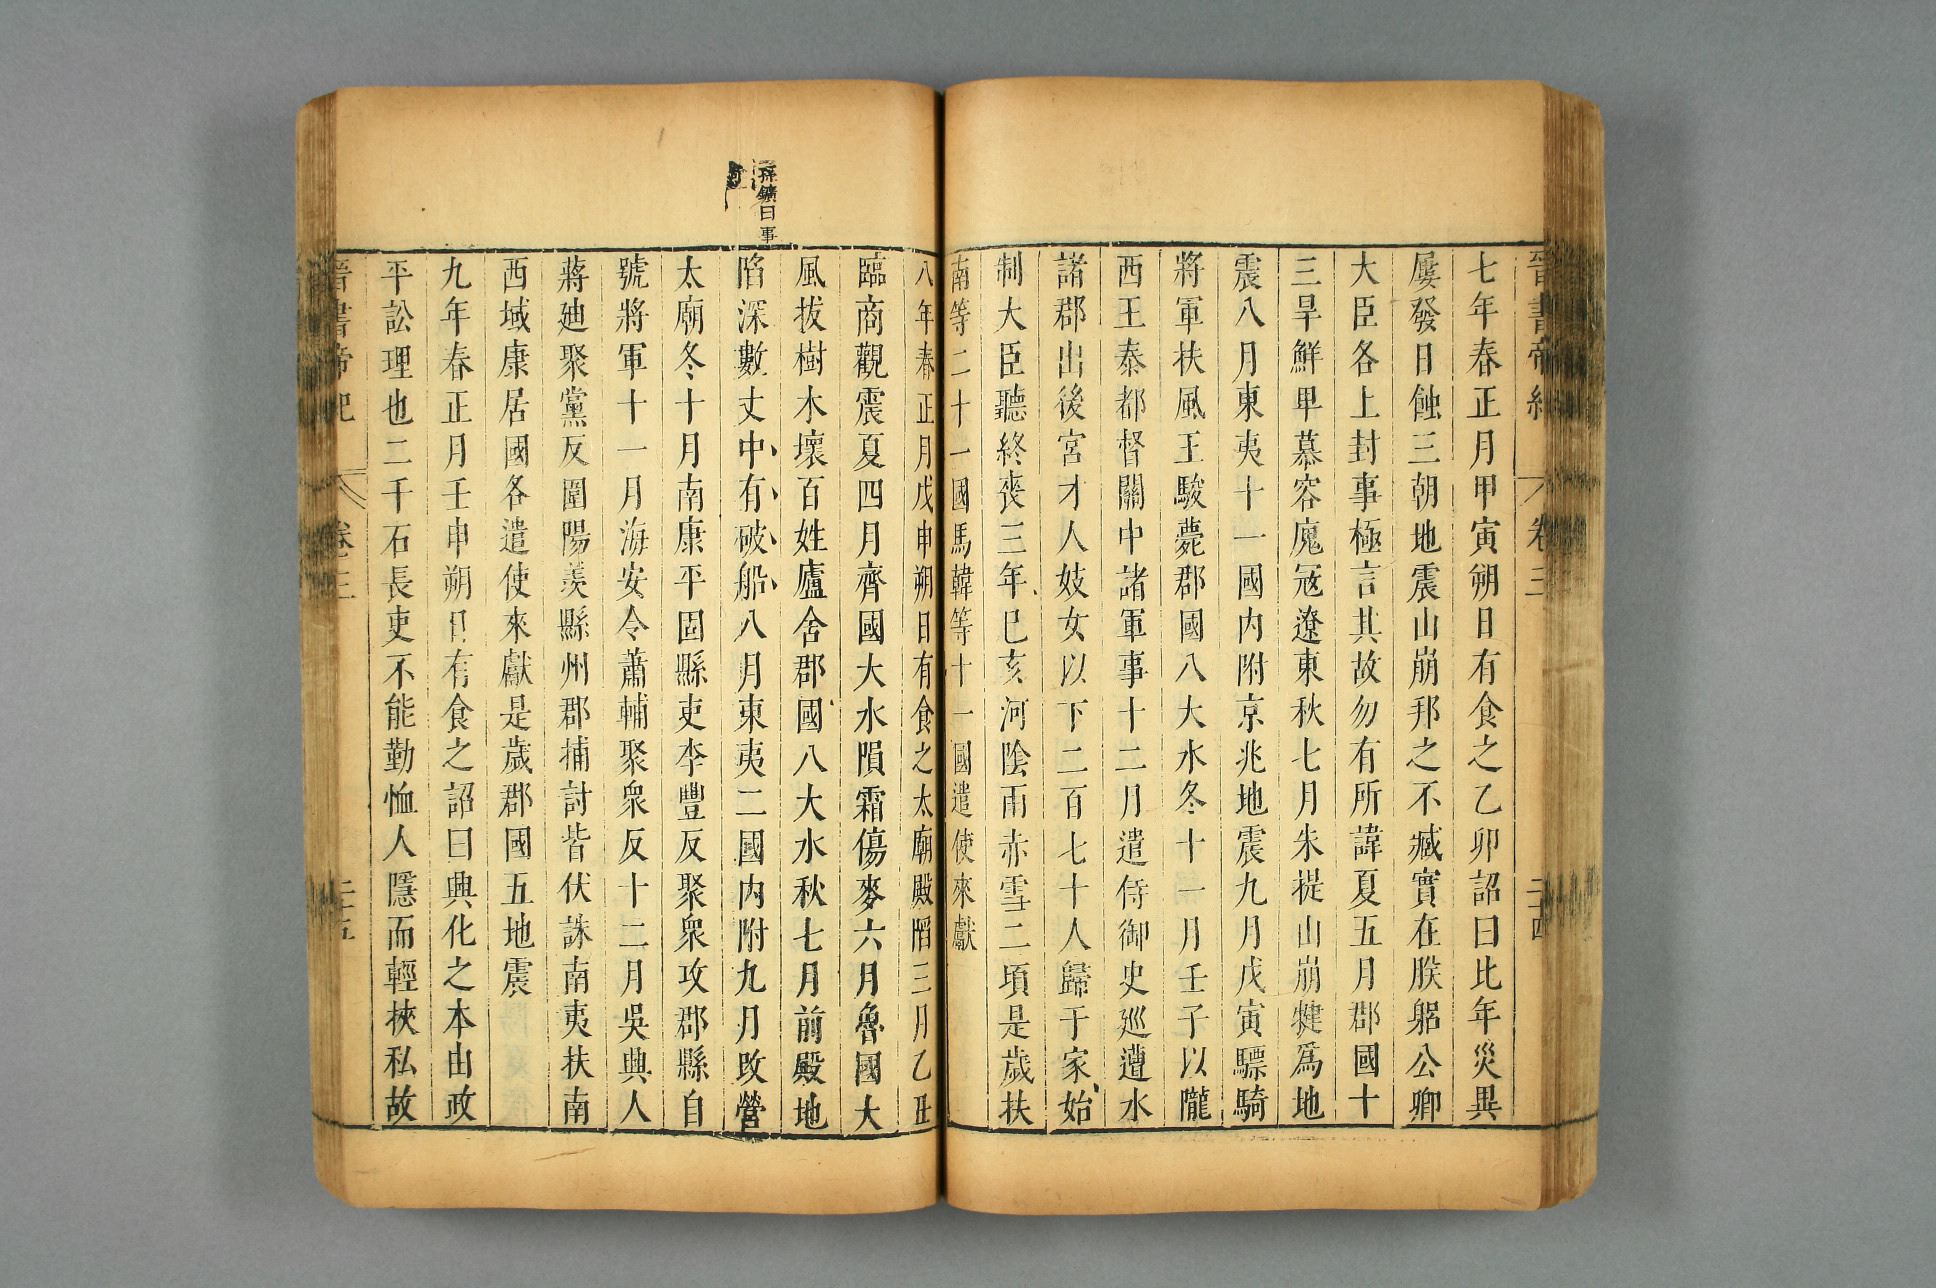 晉書帝紀 卷三 二十四
七年春正月甲寅朔日有食之乙卯詔曰比年災異
屢發日蝕三朝地震山崩邦之不臧實在朕躬公卿
大臣各上封事極言其故勿有所諱夏五月郡國十
三旱鮮卑慕容廆冦遼東秋七月朱提山崩犍爲地
震八月東夷十一國內附京兆地震九月戊寅驃騎
將軍扶風王駿薨郡國八大水冬十一月壬子以隴
西王泰都督關中諸軍事十二月遣侍御史巡遭水
諸郡出後宮才人妓女以下二百七十人歸于家始
制大臣聽終喪三年巳亥河陰雨赤雪二頃是歲扶
南等二十一國馬韓等十一國遣使來獻
八年春正月戊申朔日有食之太廟殿陷三月乙丑
臨商觀震夏四月齊國大水隕霜傷麥六月魯國大
風拔樹木壞百姓廬舍郡國八大水秋七月前殿地
陷深數丈中有破船八月東夷二國內附九月改營
太廟冬十月南康平固縣吏李豐反聚衆攻郡縣自
號將軍十一月海安令蕭輔聚衆反十二月吳興人
蔣迪聚黨反圍陽羨縣州郡捕討皆伏誅南夷扶南
西域康居國各遣使來獻是歲郡國五地震
九年春正月壬申朔日有食之詔曰興化之本由政
平訟理也二千石長吏不能勤恤人隱而輕挾私故
晉書帝紀 卷三 二十五
孫鑛曰事